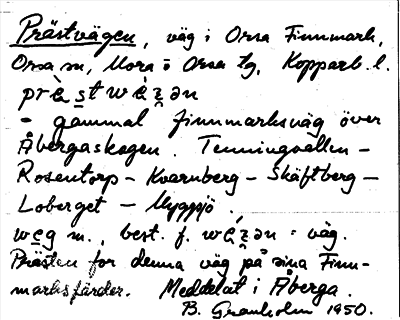 Prästvägen, väg i Orsa Finnmark,
Orsa sn, Mora o Orsa tg, Kopparb. l.
prɛ̀stwɛ́ʒən
- gammal finnmarksväg över
Åbergaskogen. Tenningvallen -
Rosentorp - Kvarnberg - Skäftberg -
Loberget - Myggsjö.
weg m., best. f. wɛ́ʒən = väg.
Prästen for denna väg på sina Finn-
marksfärder. Meddelat i Åberga.
B. Granholm 1950.